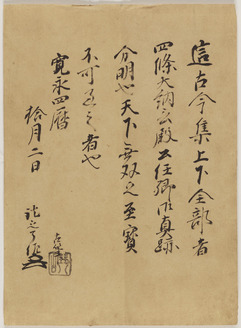 這古今集上下全部者
四條大納言殿公任卿御真跡
分明也天下無双之至寶
不可過之者也
寛永四暦
拾月二日